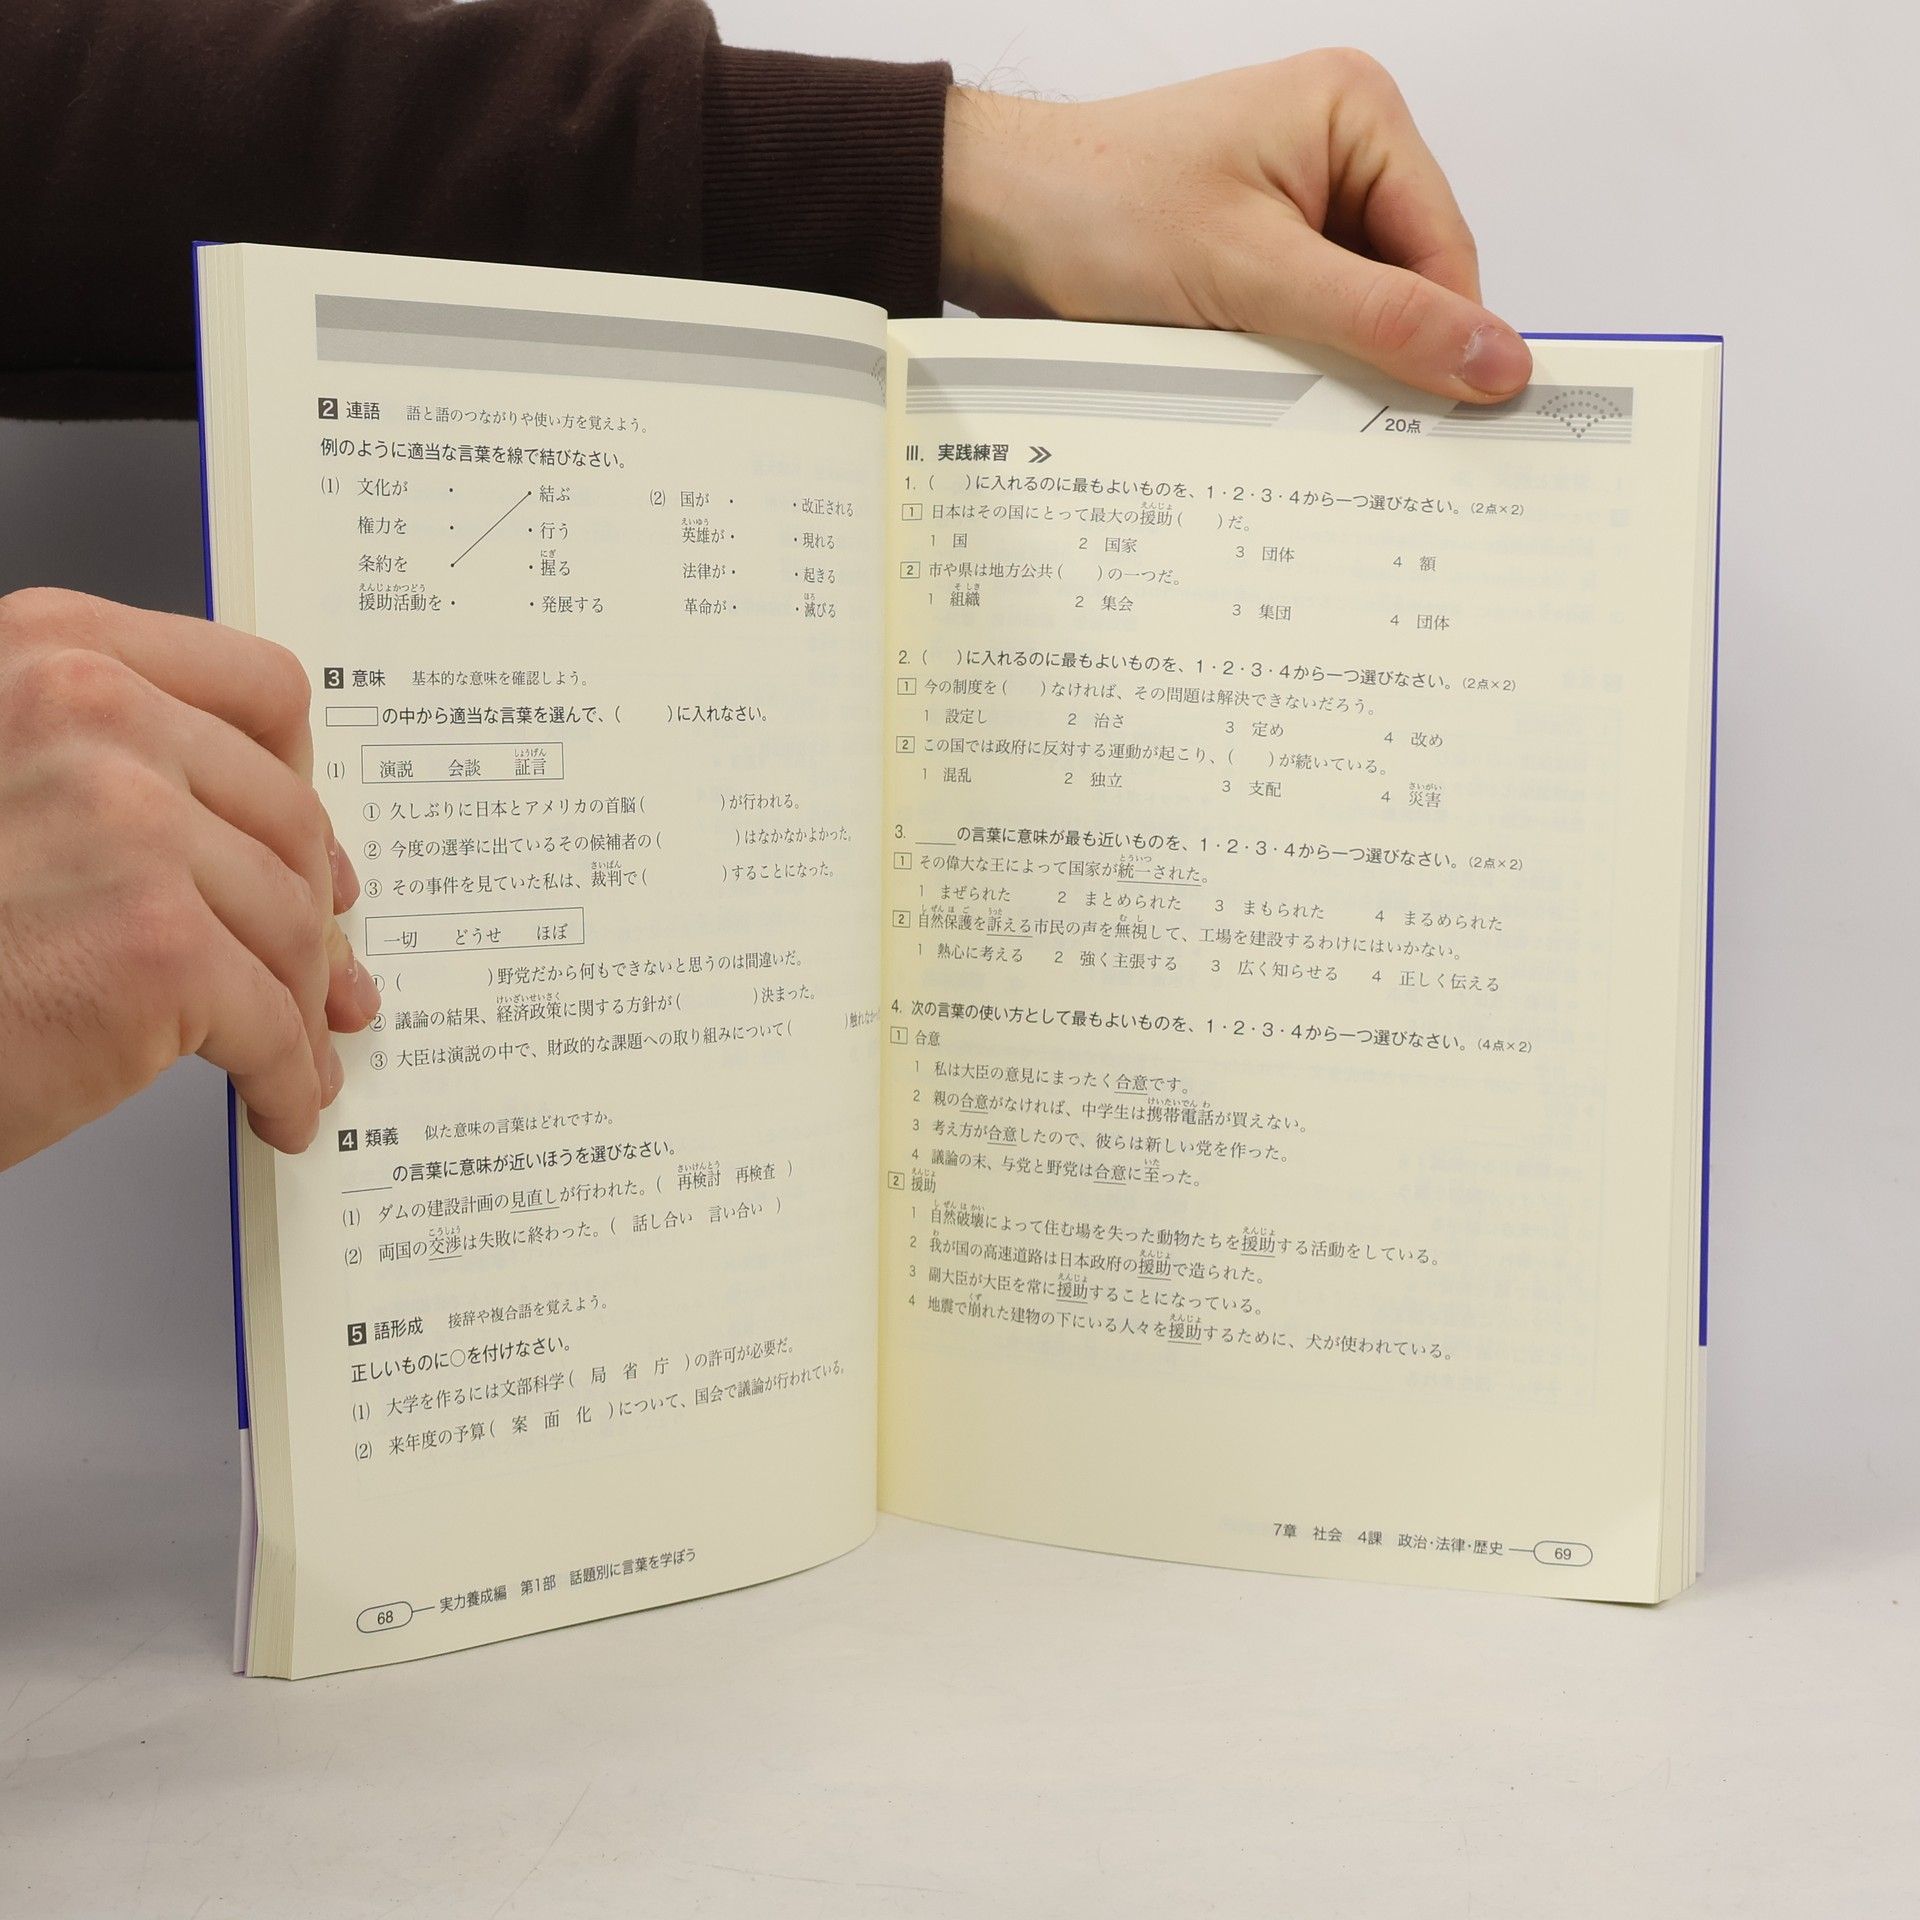 2 連語 語と語のつながりや使い方を覚えよう。
例のように適当な言葉を線で結びなさい。
(1) 文化が ・ ・結ぶ
権力を ・ ・行う
条約を ・ ・握る
援助活動を・ ・発展する
(2) 国が ・ ・改正される
英雄が・ ・現れる
法律が・ ・起きる
革命が・ ・滅びる
3 意味 基本的な意味を確認しよう。
の中から適当な言葉を選んで、( )に入れなさい。
(1) 演説 会談 証言
① 久しぶりに日本とアメリカの首脳( )が行われる。
② 今度の選挙に出ているその候補者の( )はなかなかよかった。
③ その事件を見ていた私は、裁判で( )することになった。
一切 どうせ ほぼ
① ( )野党だから何もできないと思うのは間違いだ。
② 議論の結果、経済政策に関する方針が( )決まった。
③ 大臣は演説の中で、財政的な課題への取り組みについて( )触れなか
4 類義 似た意味の言葉はどれですか。
____の言葉に意味が近いほうを選びなさい。
(1) ダムの建設計画の見直しが行われた。( 再検討 再検査 )
(2) 両国の交渉は失敗に終わった。( 話し合い 言い合い )
5 語形成 接辞や複合語を覚えよう。
正しいものに○を付けなさい。
(1) 大学を作るには文部科学( 局 省 庁 )の許可が必要だ。
(2) 来年度の予算( 案 面 化 )について、国会で議論が行われている。
68 実力養成編 第1部 話題別に言葉を学ぼう
/20点
III. 実践練習
1. ( )に入れるのに最もよいものを、1・2・3・4から一つ選びなさい。(2点×2)
1 日本はその国にとって最大の援助( )だ。
1 国 2 国家 3 団体 4 額
2 市や県は地方公共( )の一つだ。
1 組織 2 集会 3 集団 4 団体
2. ( )に入れるのに最もよいものを、1・2・3・4から一つ選びなさい。(2点×2)
1 今の制度を( )なければ、その問題は解決できないだろう。
1 設定し 2 治さ 3 定め 4 改め
2 この国では政府に反対する運動が起こり、( )が続いている。
1 混乱 2 独立 3 支配 4 災害
3. ____の言葉に意味が最も近いものを、1・2・3・4から一つ選びなさい。(2点×2)
1 その偉大な王によって国家が統一された。
1 まぜられた 2 まとめられた 3 まもられた 4 まるめられた
2 自然保護を訴える市民の声を無視して、工場を建設するわけにはいかない。
1 熱心に考える 2 強く主張する 3 広く知らせる 4 正しく伝える
4. 次の言葉の使い方として最もよいものを、1・2・3・4から一つ選びなさい。(4点×2)
1 合意
1 私は大臣の意見にまったく合意です。
2 親の合意がなければ、中学生は携帯電話が買えない。
3 考え方が合意したので、彼らは新しい党を作った。
4 議論の末、与党と野党は合意に至った。
2 援助
1 自然破壊によって住む場を失った動物たちを援助する活動をしている。
2 我が国の高速道路は日本政府の援助で造られた。
3 副大臣が大臣を常に援助することになっている。
4 地震で崩れた建物の下にいる人々を援助するために、犬が使われている。
7章 社会 4課 政治・法律・歴史 69